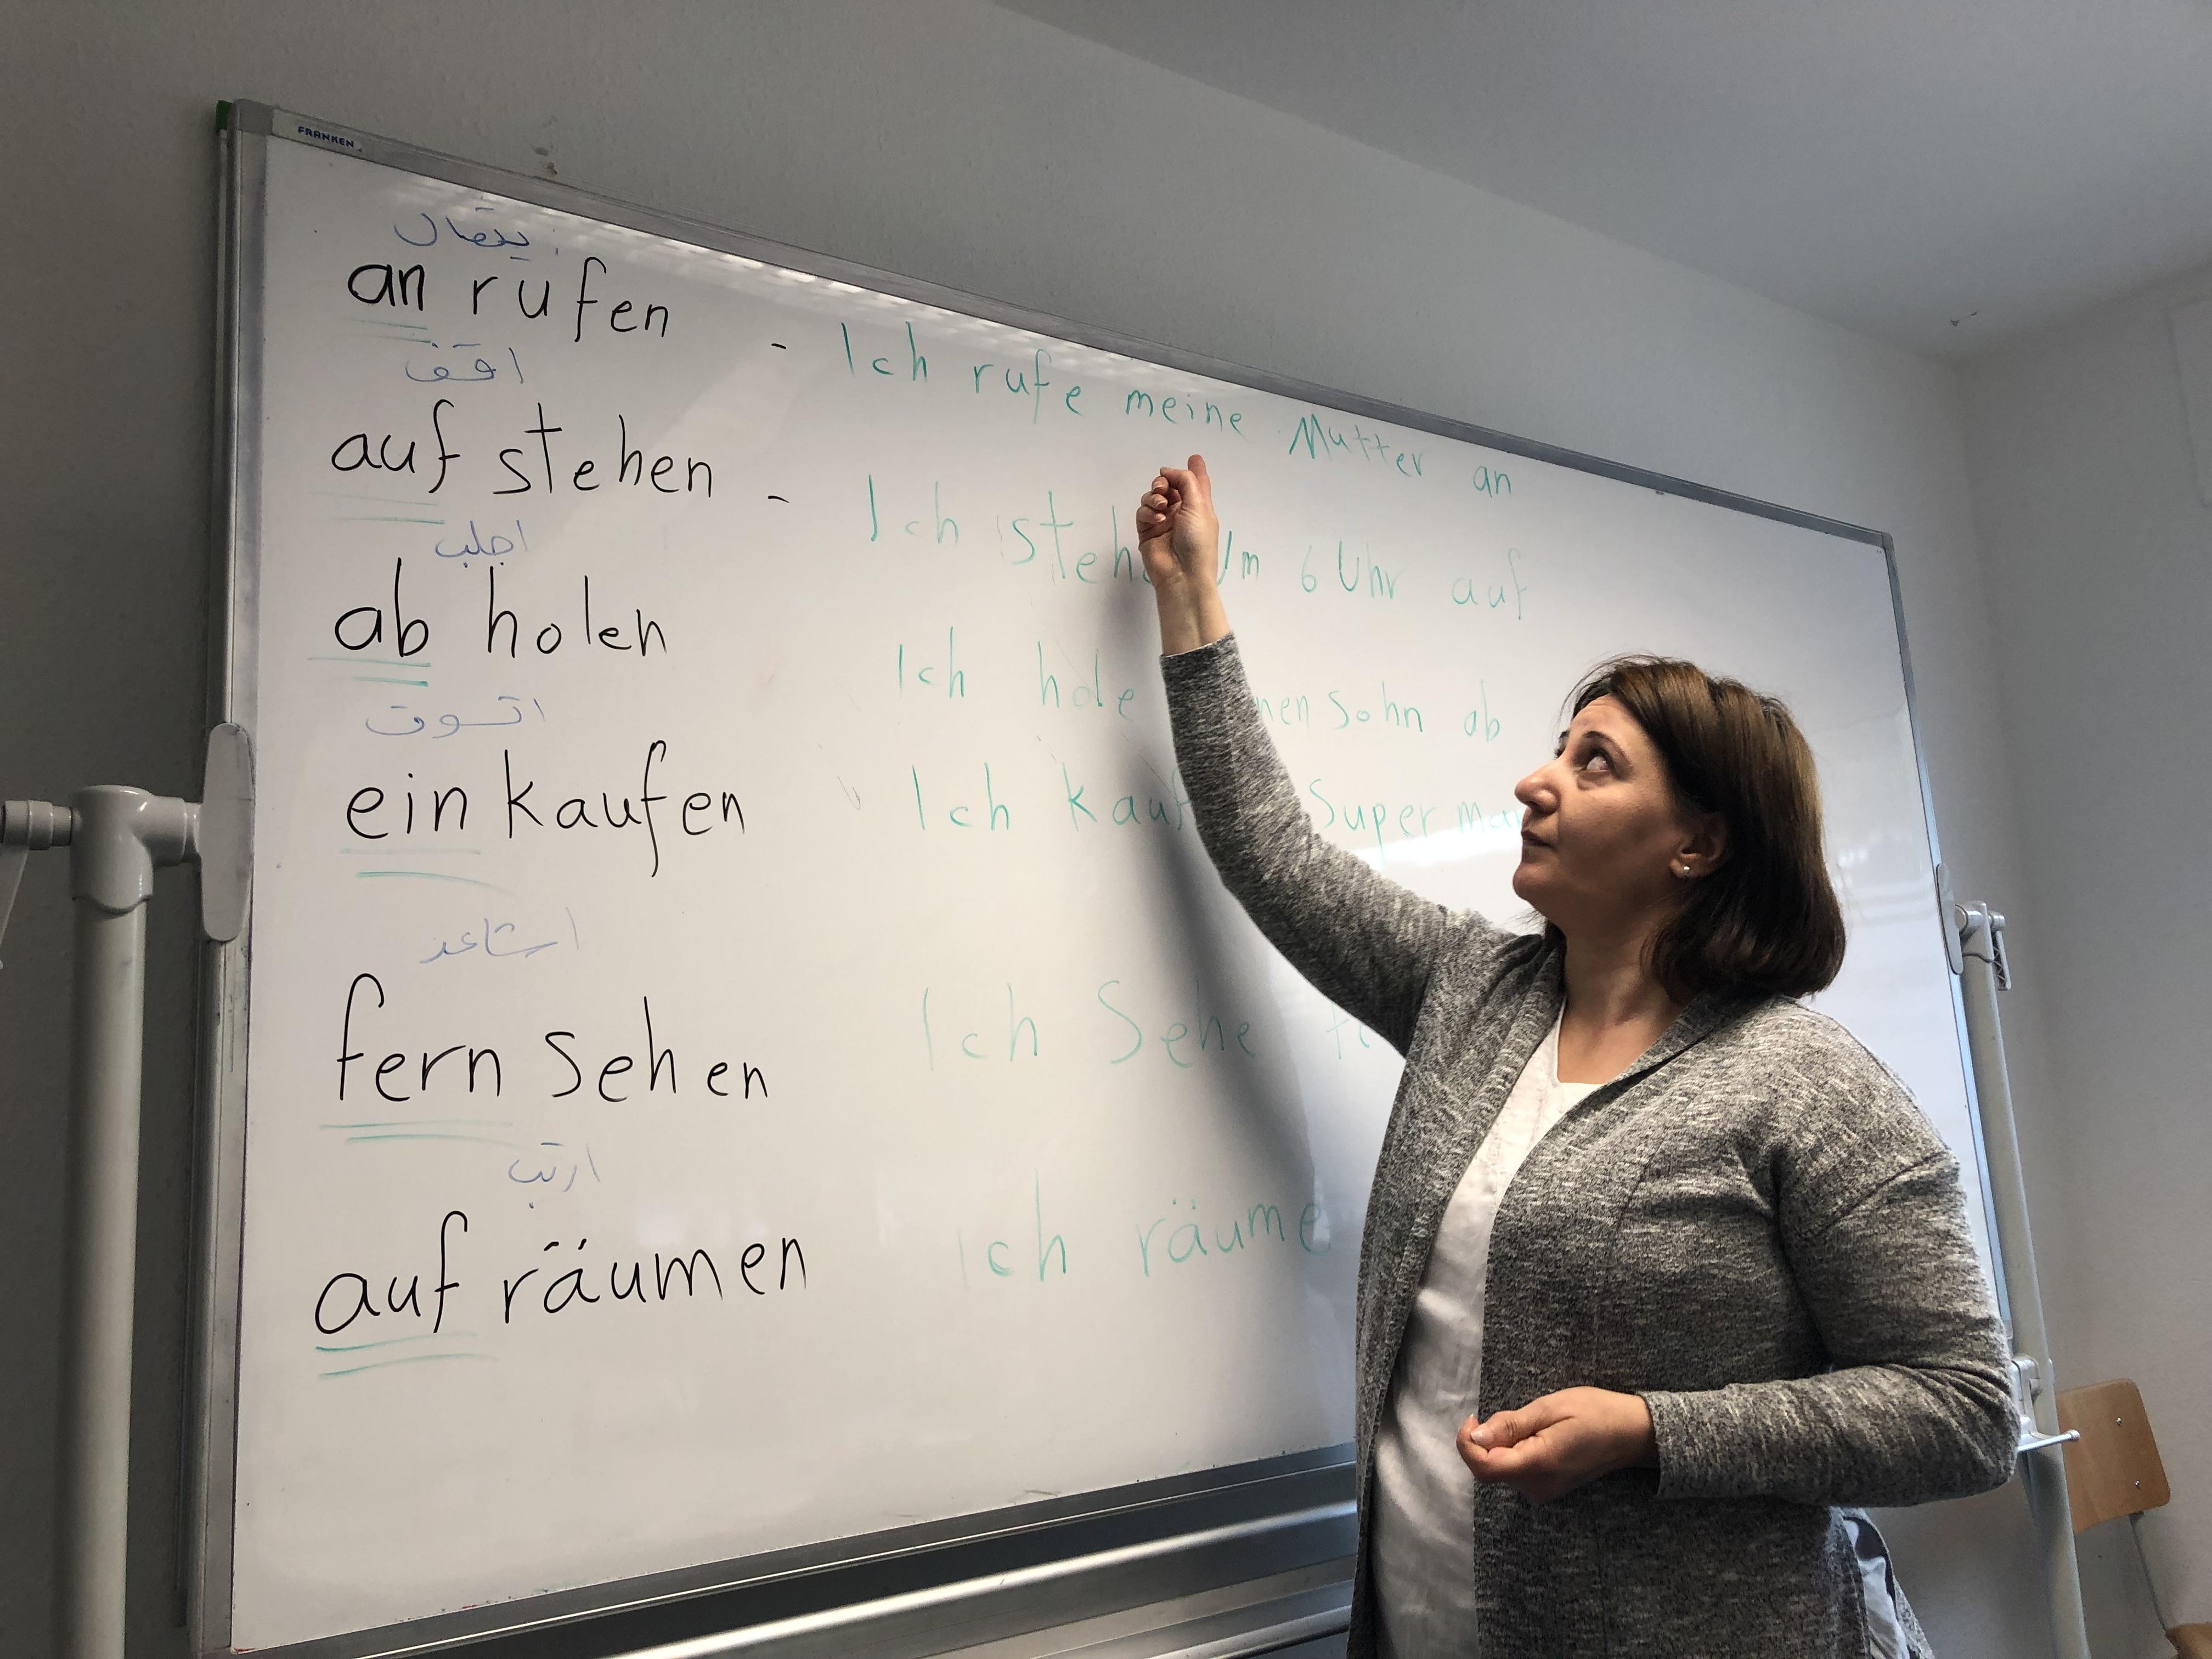 FRANKEN
an rufen - Ich rufe meine Mutter an
اقف
auf stehen - Ich stehe um 6 Uhr auf
اجلب
ab holen Ich hole Sohn ab
اتسوق
ein kaufen Ich Super
fern sehen Ich Sehe
ارتب
auf räumen Ich räume